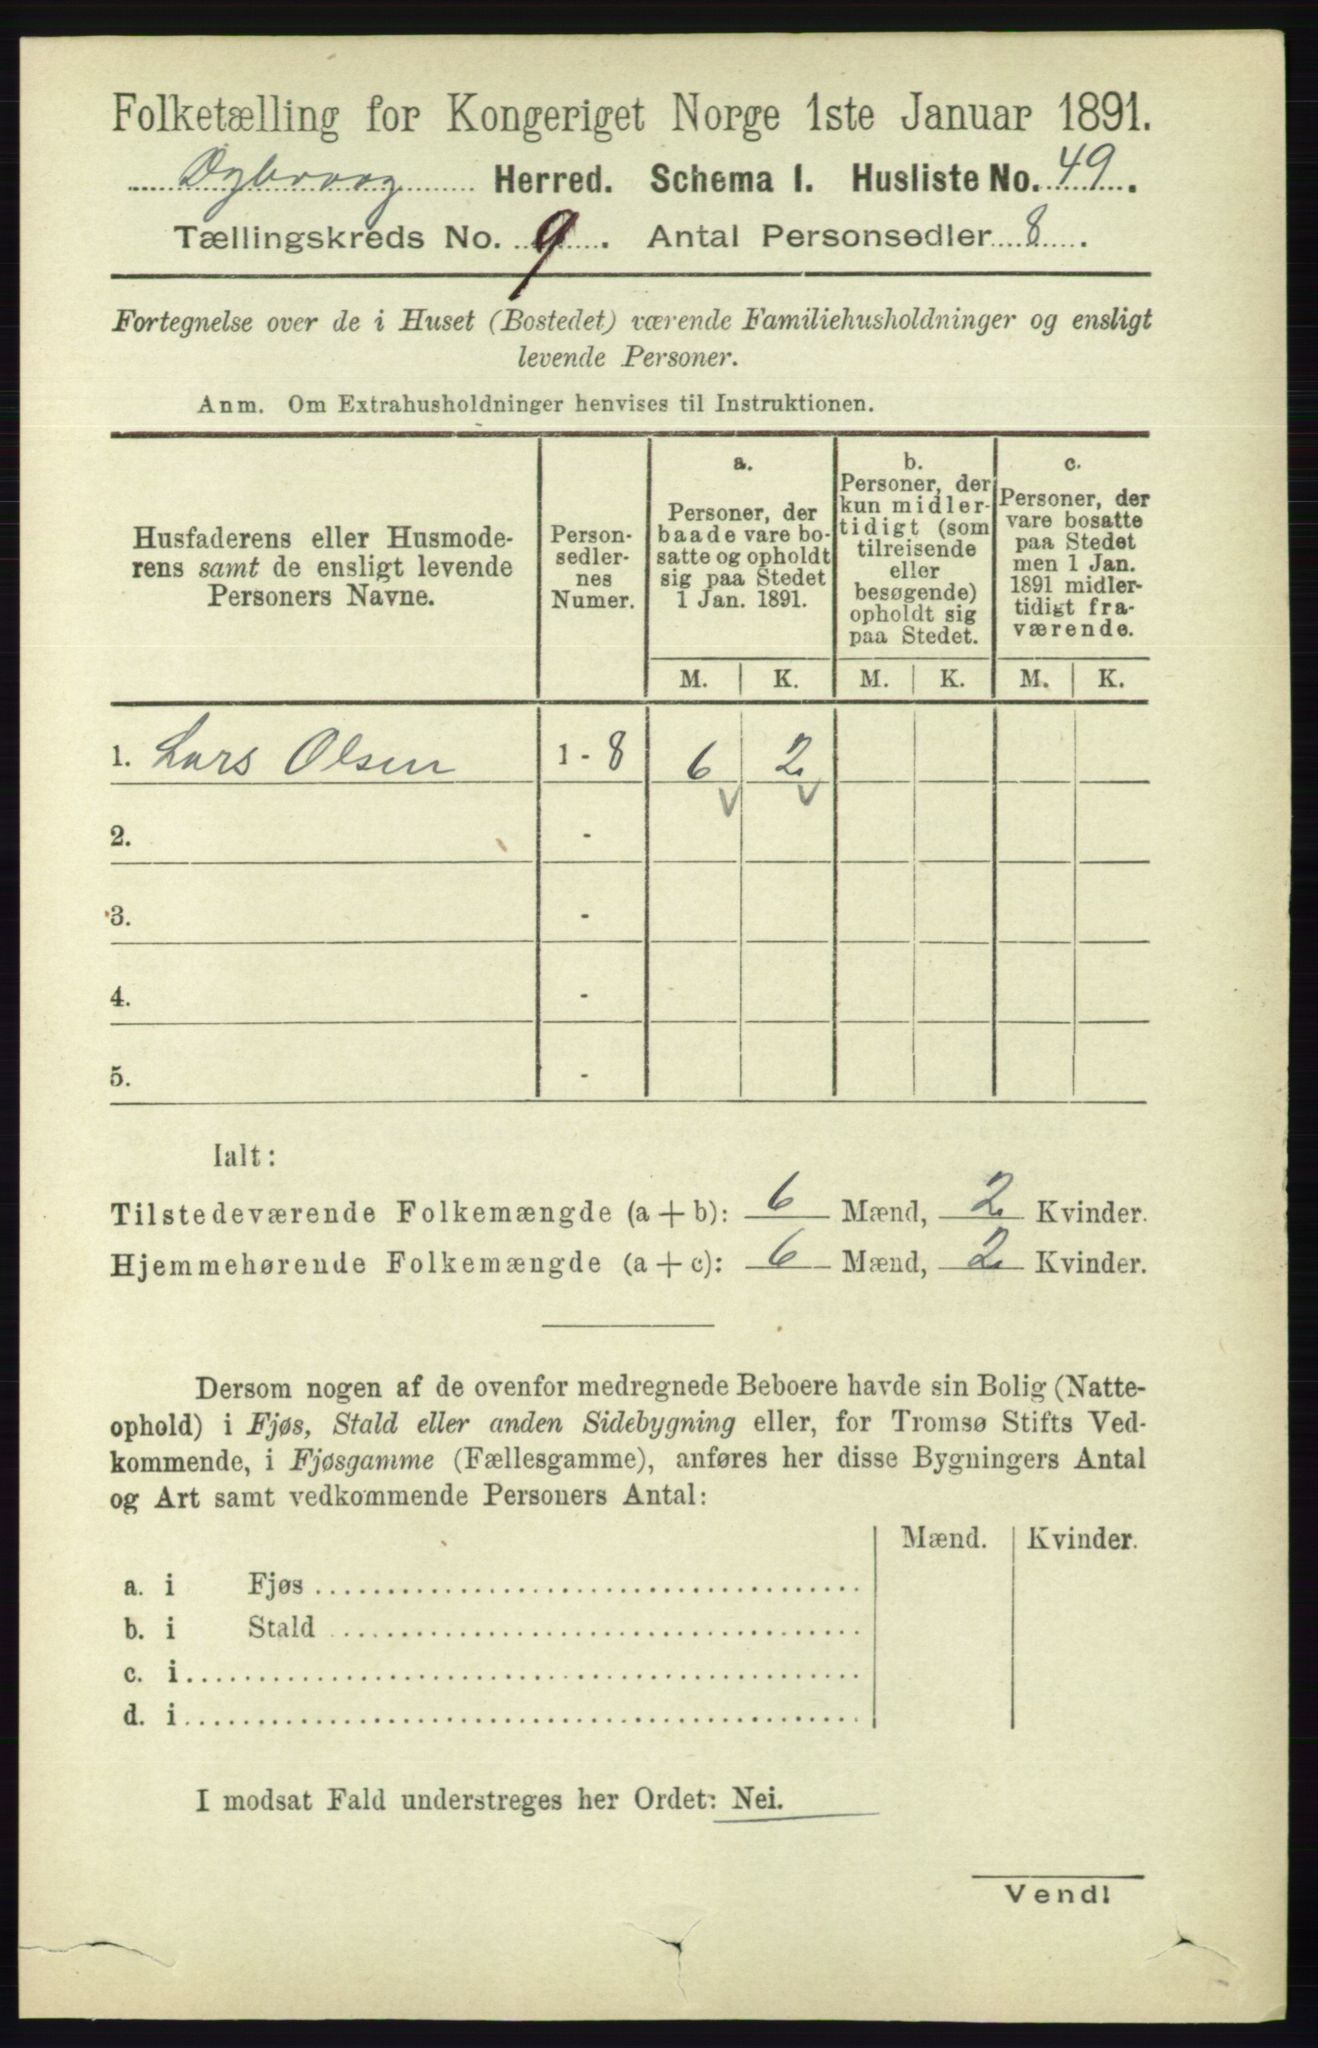 Folketælling for Kongeriget Norge 1ste Januar 1891.
Dybvaag Herred. Schema I. Husliste No. 49.
Tællingskreds No. 9. Antal Personsedler 8.
Fortegnelse over de i Huset (Bostedet) værende Familiehusholdninger og ensligt
levende Personer.
Anm. Om Extrahusholdninger henvises til Instruktionen.
Husfaderens eller Husmode-
rens samt de ensligt levende
Personers Navne.
Person-
sedler-
nes
Numer.
a.
Personer, der
baade vare bo-
satte og opholdt
sig paa Stedet
1 Jan. 1891.
b.
Personer, der
kun midler-
tidigt (som
tilreisende
eller
besøgende)
opholdt sig
paa Stedet.
c.
Personer, der
vare bosatte
paa Stedet
men 1 Jan.
1891 midler-
tidigt fra-
værende.
M. K. M. K. M. K.
1. Lars Olsen 1 - 8 6 2
2. -
3. -
4. -
5. -
Ialt:
Tilstedeværende Folkemængde (a + b): 6 Mænd, 2 Kvinder.
Hjemmehørende Folkemængde (a + c): 6 Mænd, 2 Kvinder.
Dersom nogen af de ovenfor medregnede Beboere havde sin Bolig (Natte-
ophold) i Fjøs, Stald eller anden Sidebygning eller, for Tromsø Stifts Ved-
kommende, i Fjøsgamme (Fællesgamme), anføres her disse Bygningers Antal
og Art samt vedkommende Personers Antal:
Mænd. Kvinder.
a. i Fjøs
b. i Stald
c. i
d. i
I modsat Fald understreges her Ordet: Nei.
Vend!